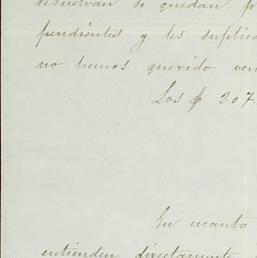 resuelvan si quedan
pendientes y les suplic
no hemos querido ven
Los $ 207.
En cuanto
entienden directamente